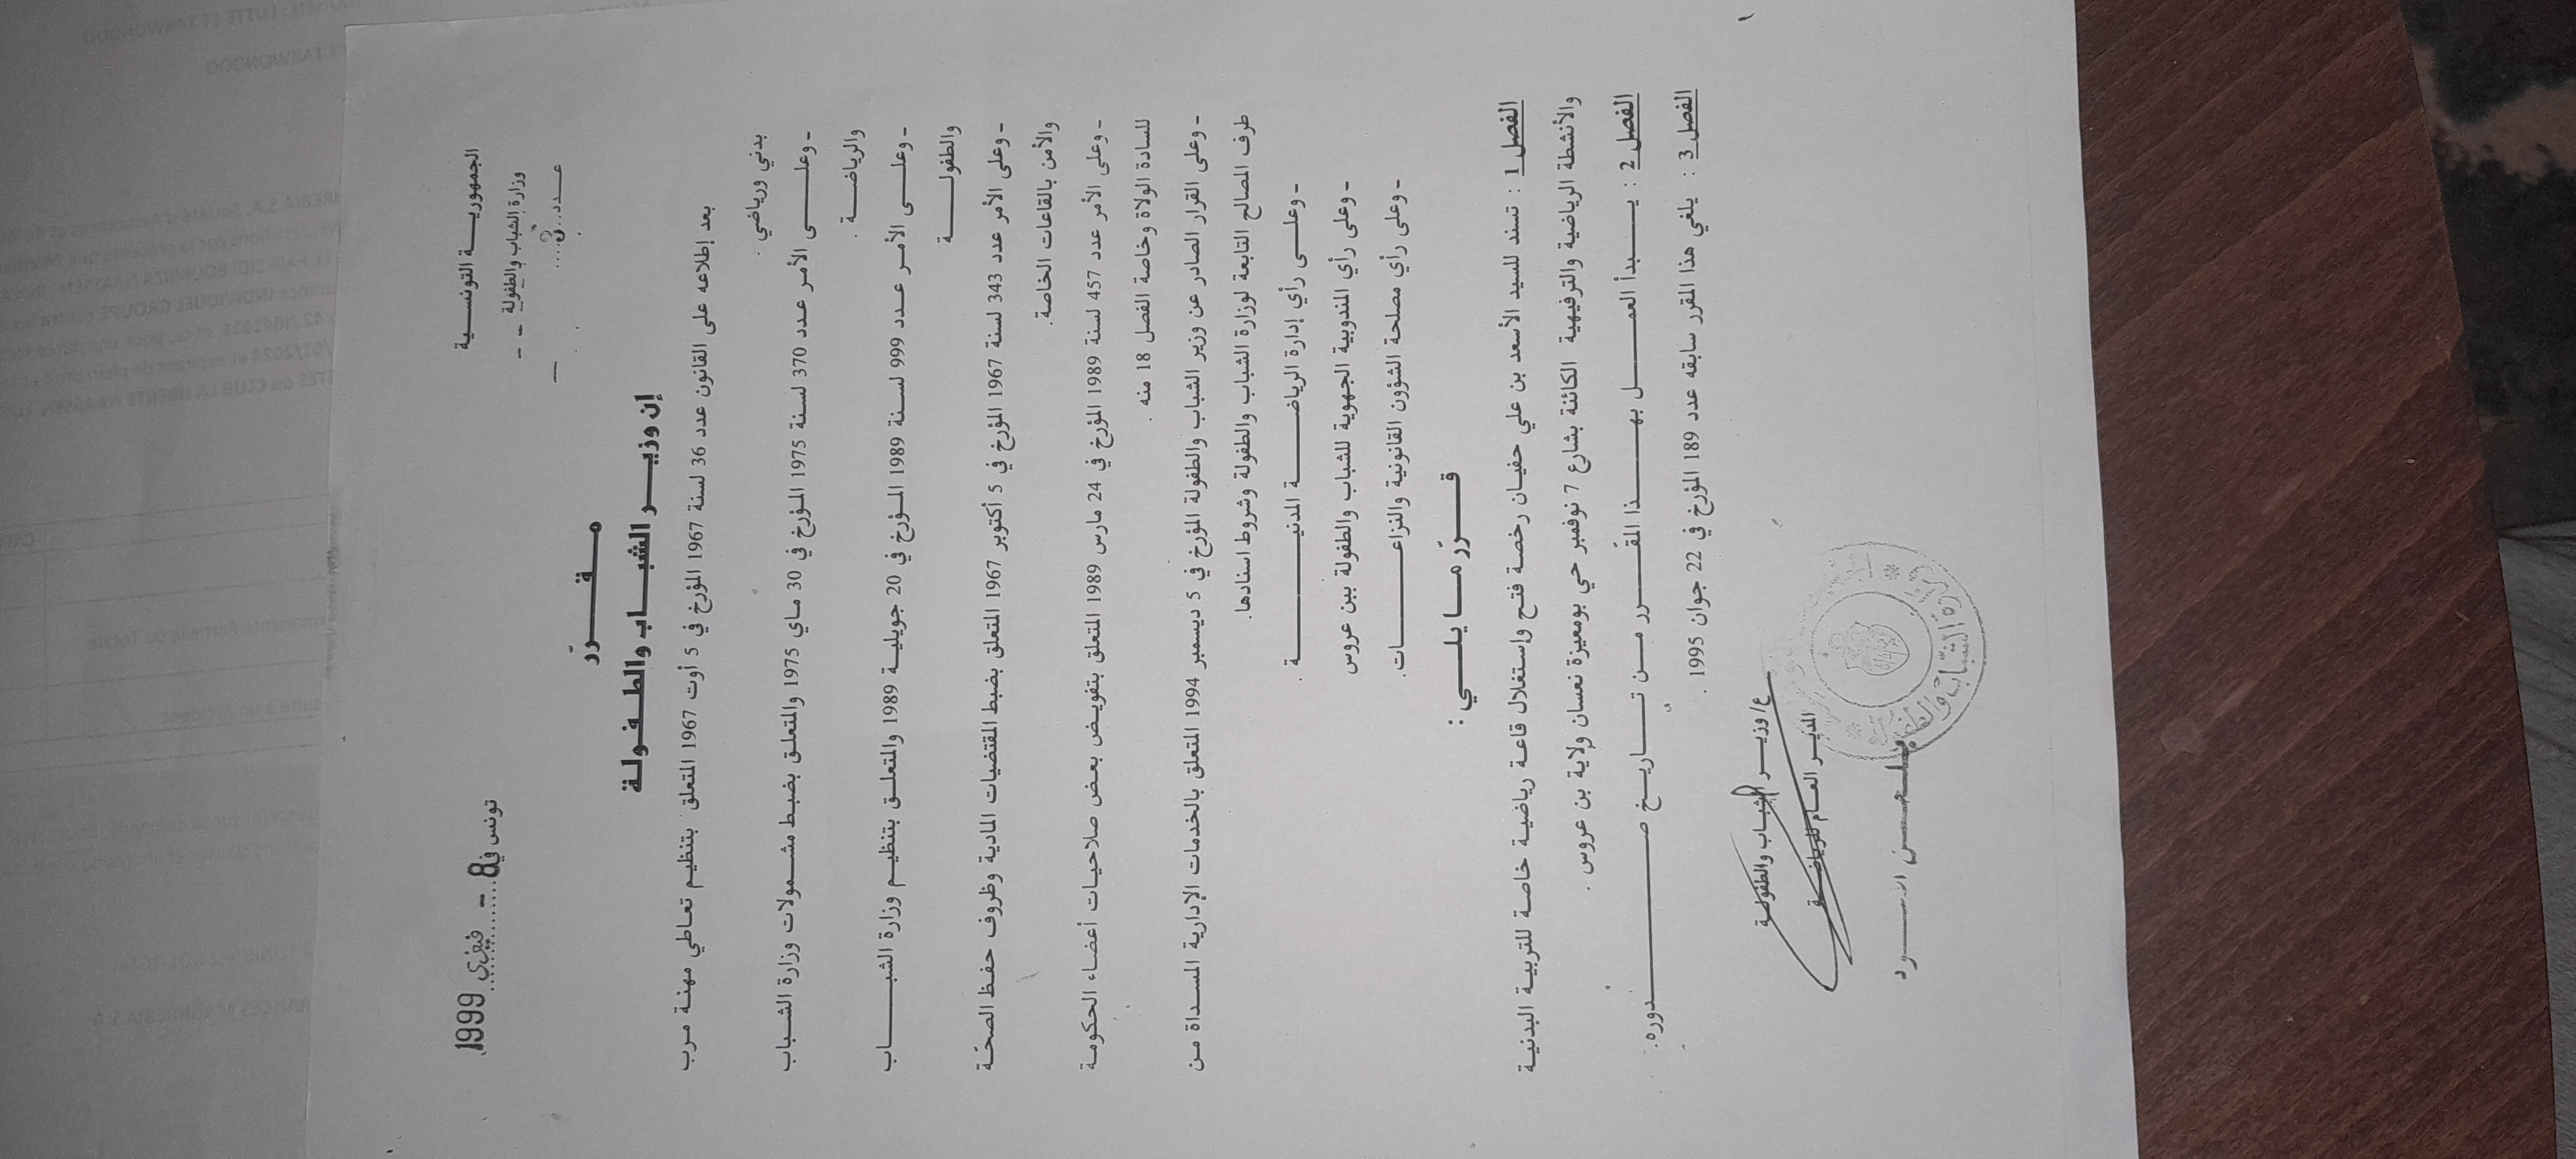 الجمهوريـــة التونســـية
وزارة الشباب والطفولة
عـــدد
تونس في 8 - فيفري 1999
مـــقـــرّر
إن وزيـــر الشبـــاب والطـفـولـة
بعد إطلاعه على القانون عدد 36 لسنة 1967 المؤرخ في 5 أوت 1967 المتعلق بتنظيم تعاطي مهنة مرب
بدني ورياضي .
- وعلـــى الأمر عدد 370 لسنة 1975 المؤرخ في 30 ماي 1975 والمتعلق بضبط مشمولات وزارة الشباب
والرياضـــة .
- وعلـــى الأمر عدد 999 لسنة 1989 المؤرخ في 20 جويلية 1989 والمتعلق بتنظيم وزارة الشبـــاب
والطفولـــة
- وعلى الأمر عدد 343 لسنة 1967 المؤرخ في 5 أكتوبر 1967 المتعلق بضبط المقتضيات المادية وظروف حفظ الصحّة
والأمن بالقاعات الخاصة.
- وعلى الأمر عدد 457 لسنة 1989 المؤرخ في 24 مارس 1989 المتعلق بتفويض بعض صلاحيات أعضاء الحكومة
للسادة الولاة وخاصة الفصل 18 منه .
- وعلى القرار الصادر عن وزير الشباب والطفولة المؤرخ في 5 ديسمبر 1994 المتعلق بالخدمات الإدارية المسداة من
طرف المصالح التابعة لوزارة الشباب والطفولة وشروط اسنادها.
- وعلـــى رأي إدارة الرياضـــة المدنيـــة .
- وعلى رأي المندوبية الجهوية للشباب والطفولة ببن عروس
- وعلى رأي مصلحة الشؤون القانونية والنزاعـــات.
قـــرّر مـــا يلـــي :
الفصل 1 : تسند للسيد الأسعد بن علي حفيان رخصة فتح وإستغلال قاعة رياضية خاصة للتربية البدنية
والأنشطة الرياضية والترفيهية الكائنة بشارع 7 نوفمبر حي بومعيزة نعسان ولاية بن عروس .
الفصل 2 : يـــبدأ العمـــل بهـــذا المقـــرر مـــن تـــاريـــخ صـــدوره.
الفصل 3 : يلغي هذا المقرر سابقه عدد 189 المؤرخ في 22 جوان 1995 .
ع/ وزيـــر الشباب والطفولـــة
المديـــر العـــام للرياضـــة